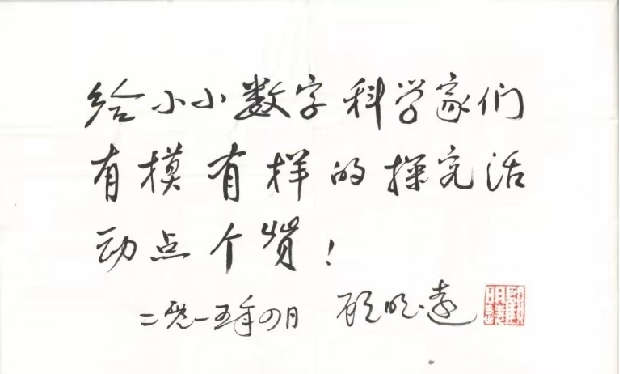 给小小数字科学家们
有模有样的探究活
动点个赞！
二〇一五年四月 顾明远